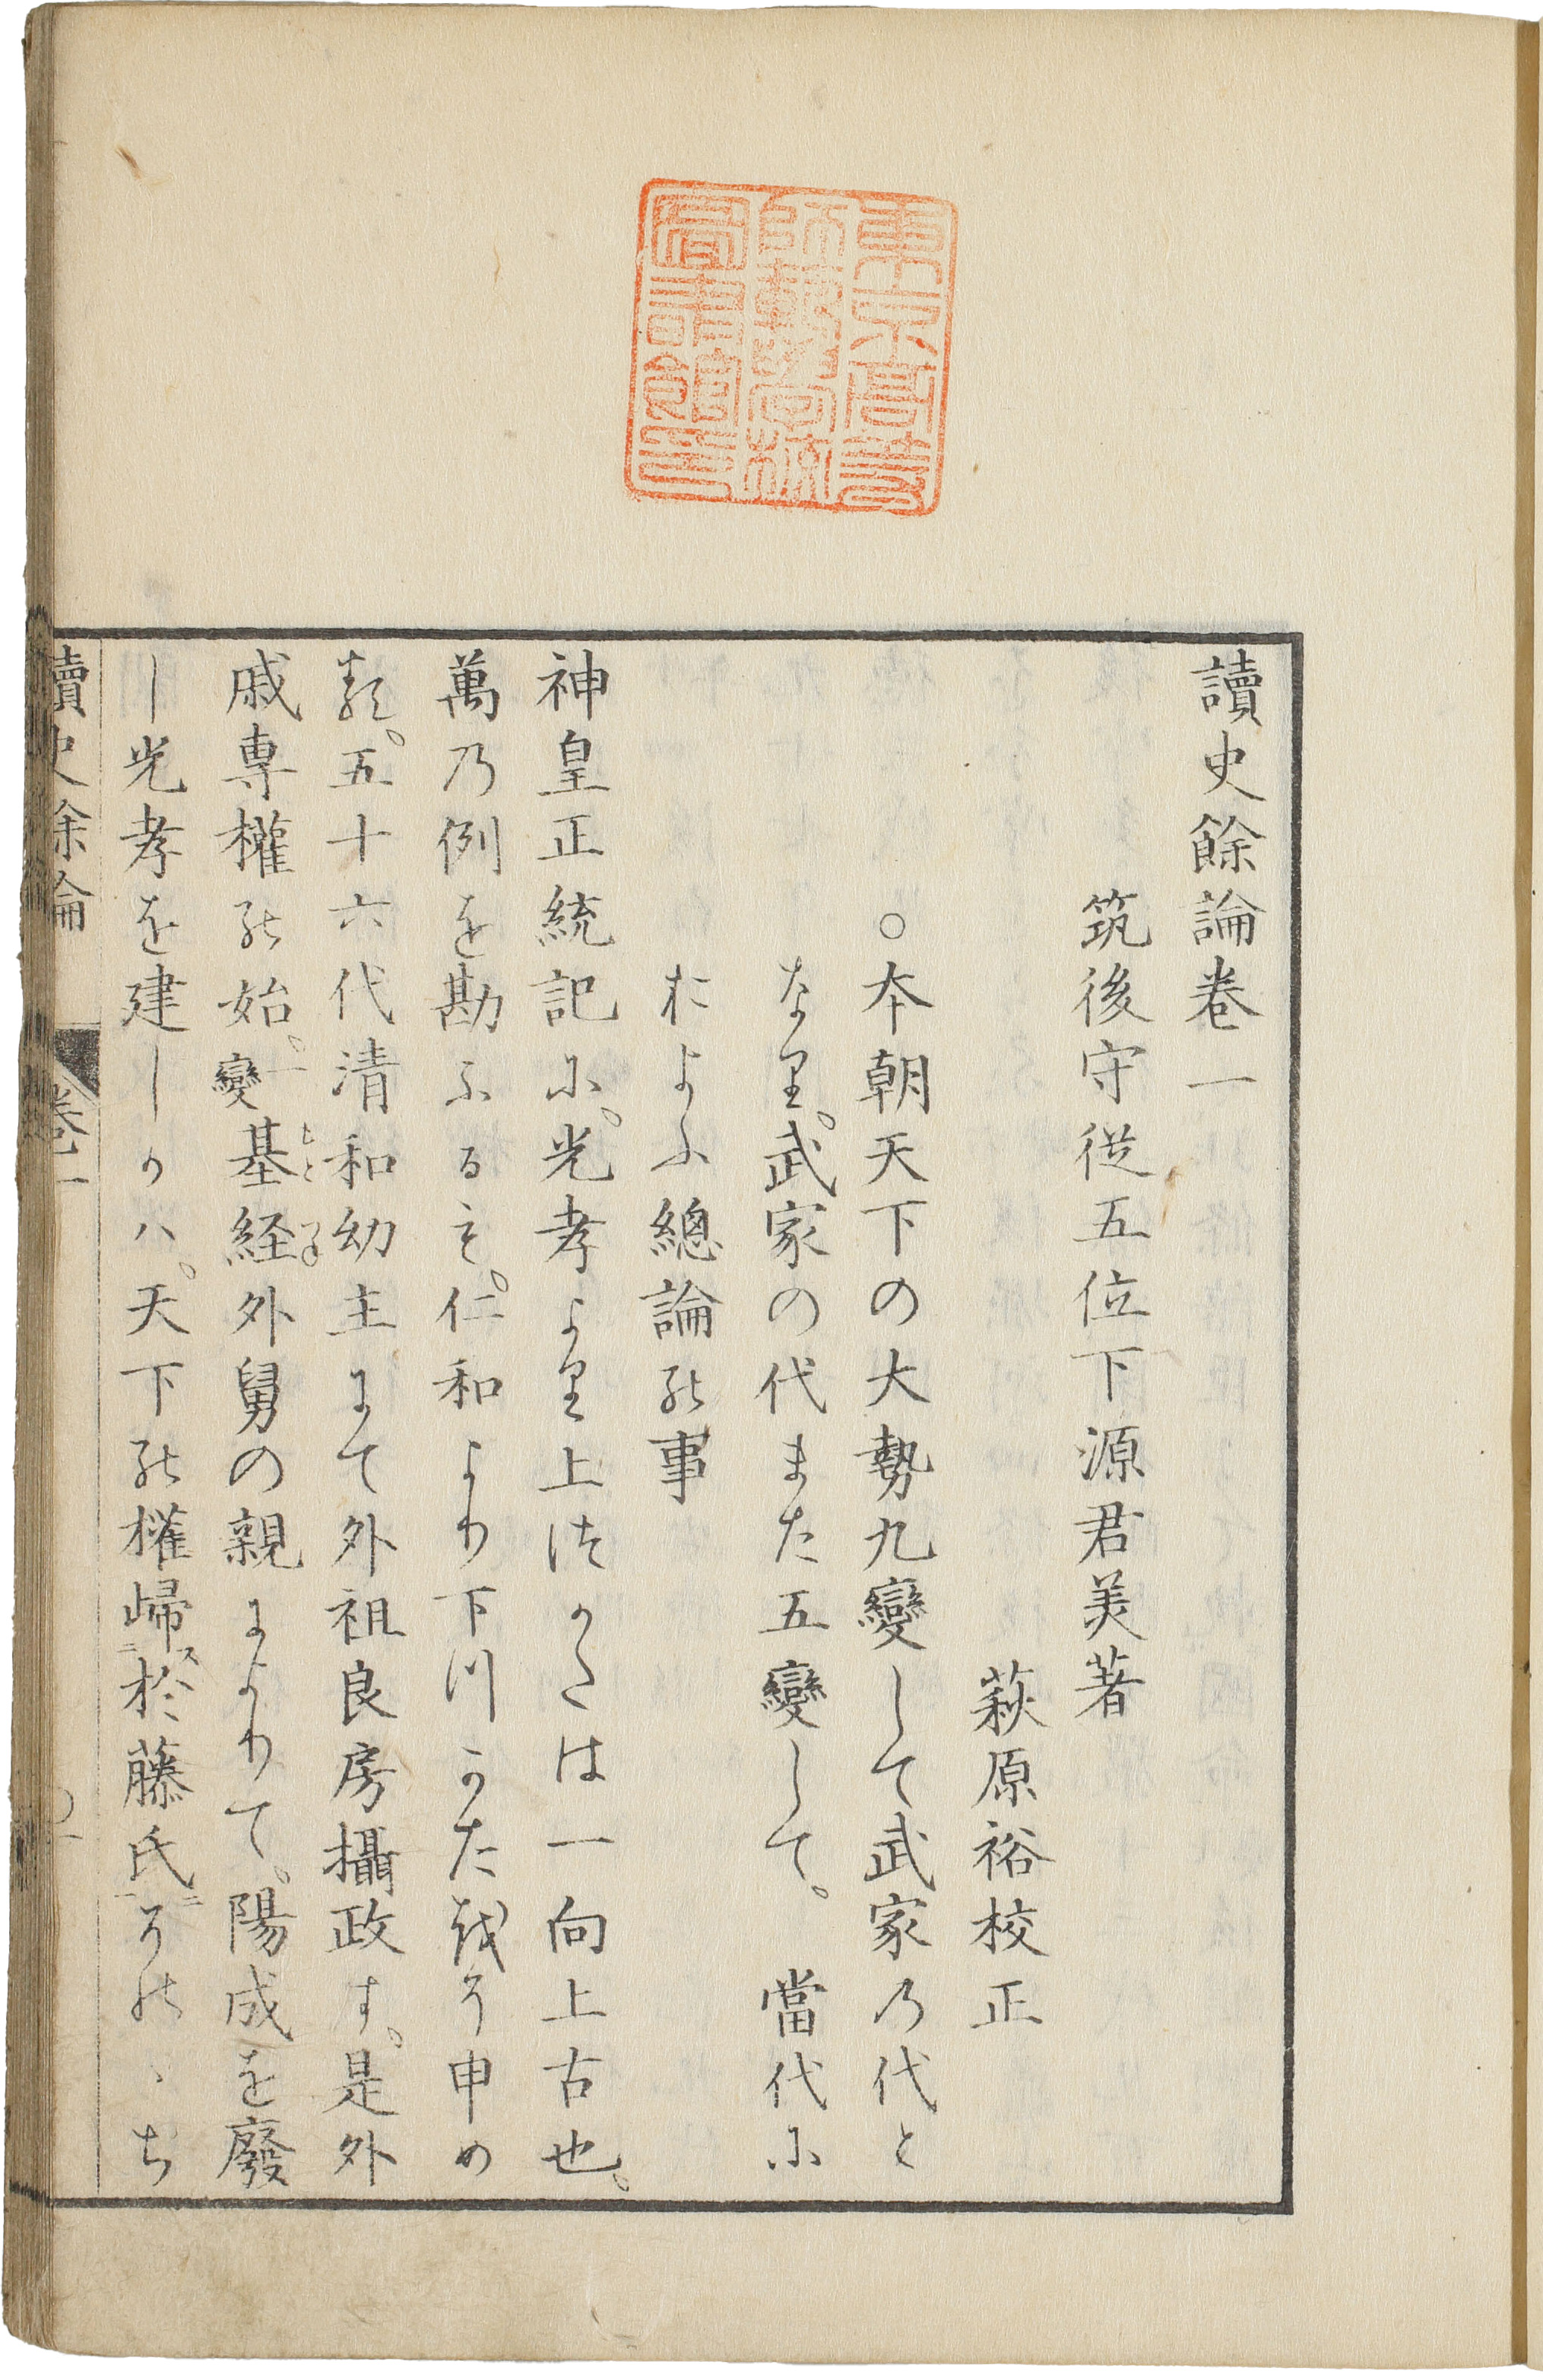 東京高等
師範學校
圖書館印
讀史餘論卷一
筑後守從五位下源君美著
萩原裕校正
○本朝天下の大勢九變して武家乃代と
なり。武家の代また五變して。　當代に
およふ總論の事
神皇正統記に。光孝より上つかたは一向上古也。
萬乃例を勘ふるも。仁和より下川かた越そ申め
る。五十六代清和幼主にて外祖良房攝政す。是外
戚専權の始。一變基経外舅の親によりて。陽成を廢
し光孝を建しかハ。天下の權歸ス二於藤氏一ニそのゝち
もとつね
讀史餘論　卷一